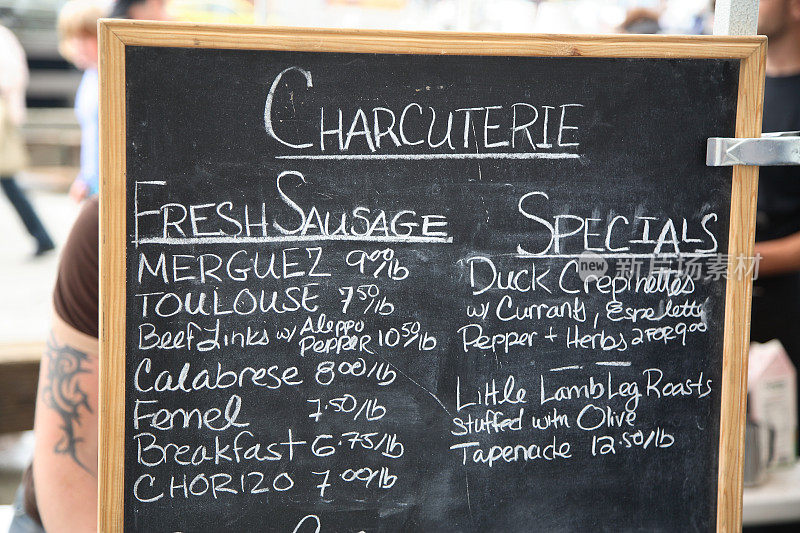 Charcuterie
Fresh Sausage
Merguez 9.00/lb
Toulouse 7.50/lb
Beef Links w/ Aleppo Pepper 10.50/lb
Calabrese 8.00/lb
Fennel 7.50/lb
Breakfast 6.75/lb
Chorizo 7.00/lb
Specials
Duck Crepinettes
w/ Currants, Espelette
Pepper + Herbs 2 for 9.00
Little Lamb Leg Roasts
stuffed with Olive
Tapenade 12.50/lb
new 新浪图片